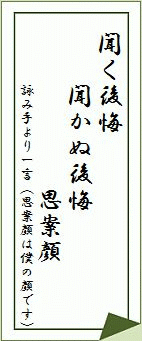 聞く後悔
聞かぬ後悔
思案顔
詠み手より一言（思案顔は僕の顔です）